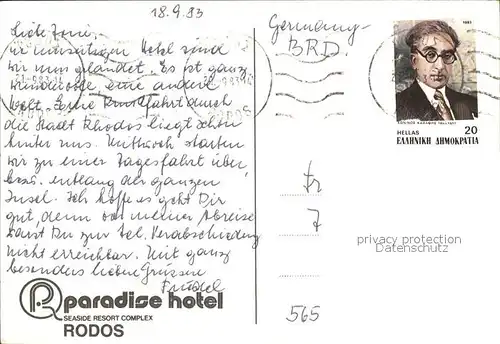 18.9.83
Liebe Toni,
in unserem Hotel sind
wir nun gelandet. Es ist ganz
wundervoll eine andere
Welt. Eine Rundfahrt durch
die Stadt Rhodos liegt schon
hinter uns. Mittwoch starten
wir zu einer Tagesfahrt über,
bzw. entlang der ganzen
Insel. Ich hoffe es geht Dir
gut, denn vor meiner Abreise
warst Du zur tel. Verabschiedung
nicht erreichbar. Mit ganz
besonders lieben Grüssen
paradise hotel
SEASIDE RESORT COMPLEX
RODOS
Germany-
BRD.
1983
HELLAS 20
ΕΛΛΗΝΙΚΗ ΔΗΜΟΚΡΑΤΙΑ
fr
7
565
privacy protection
Datenschutz